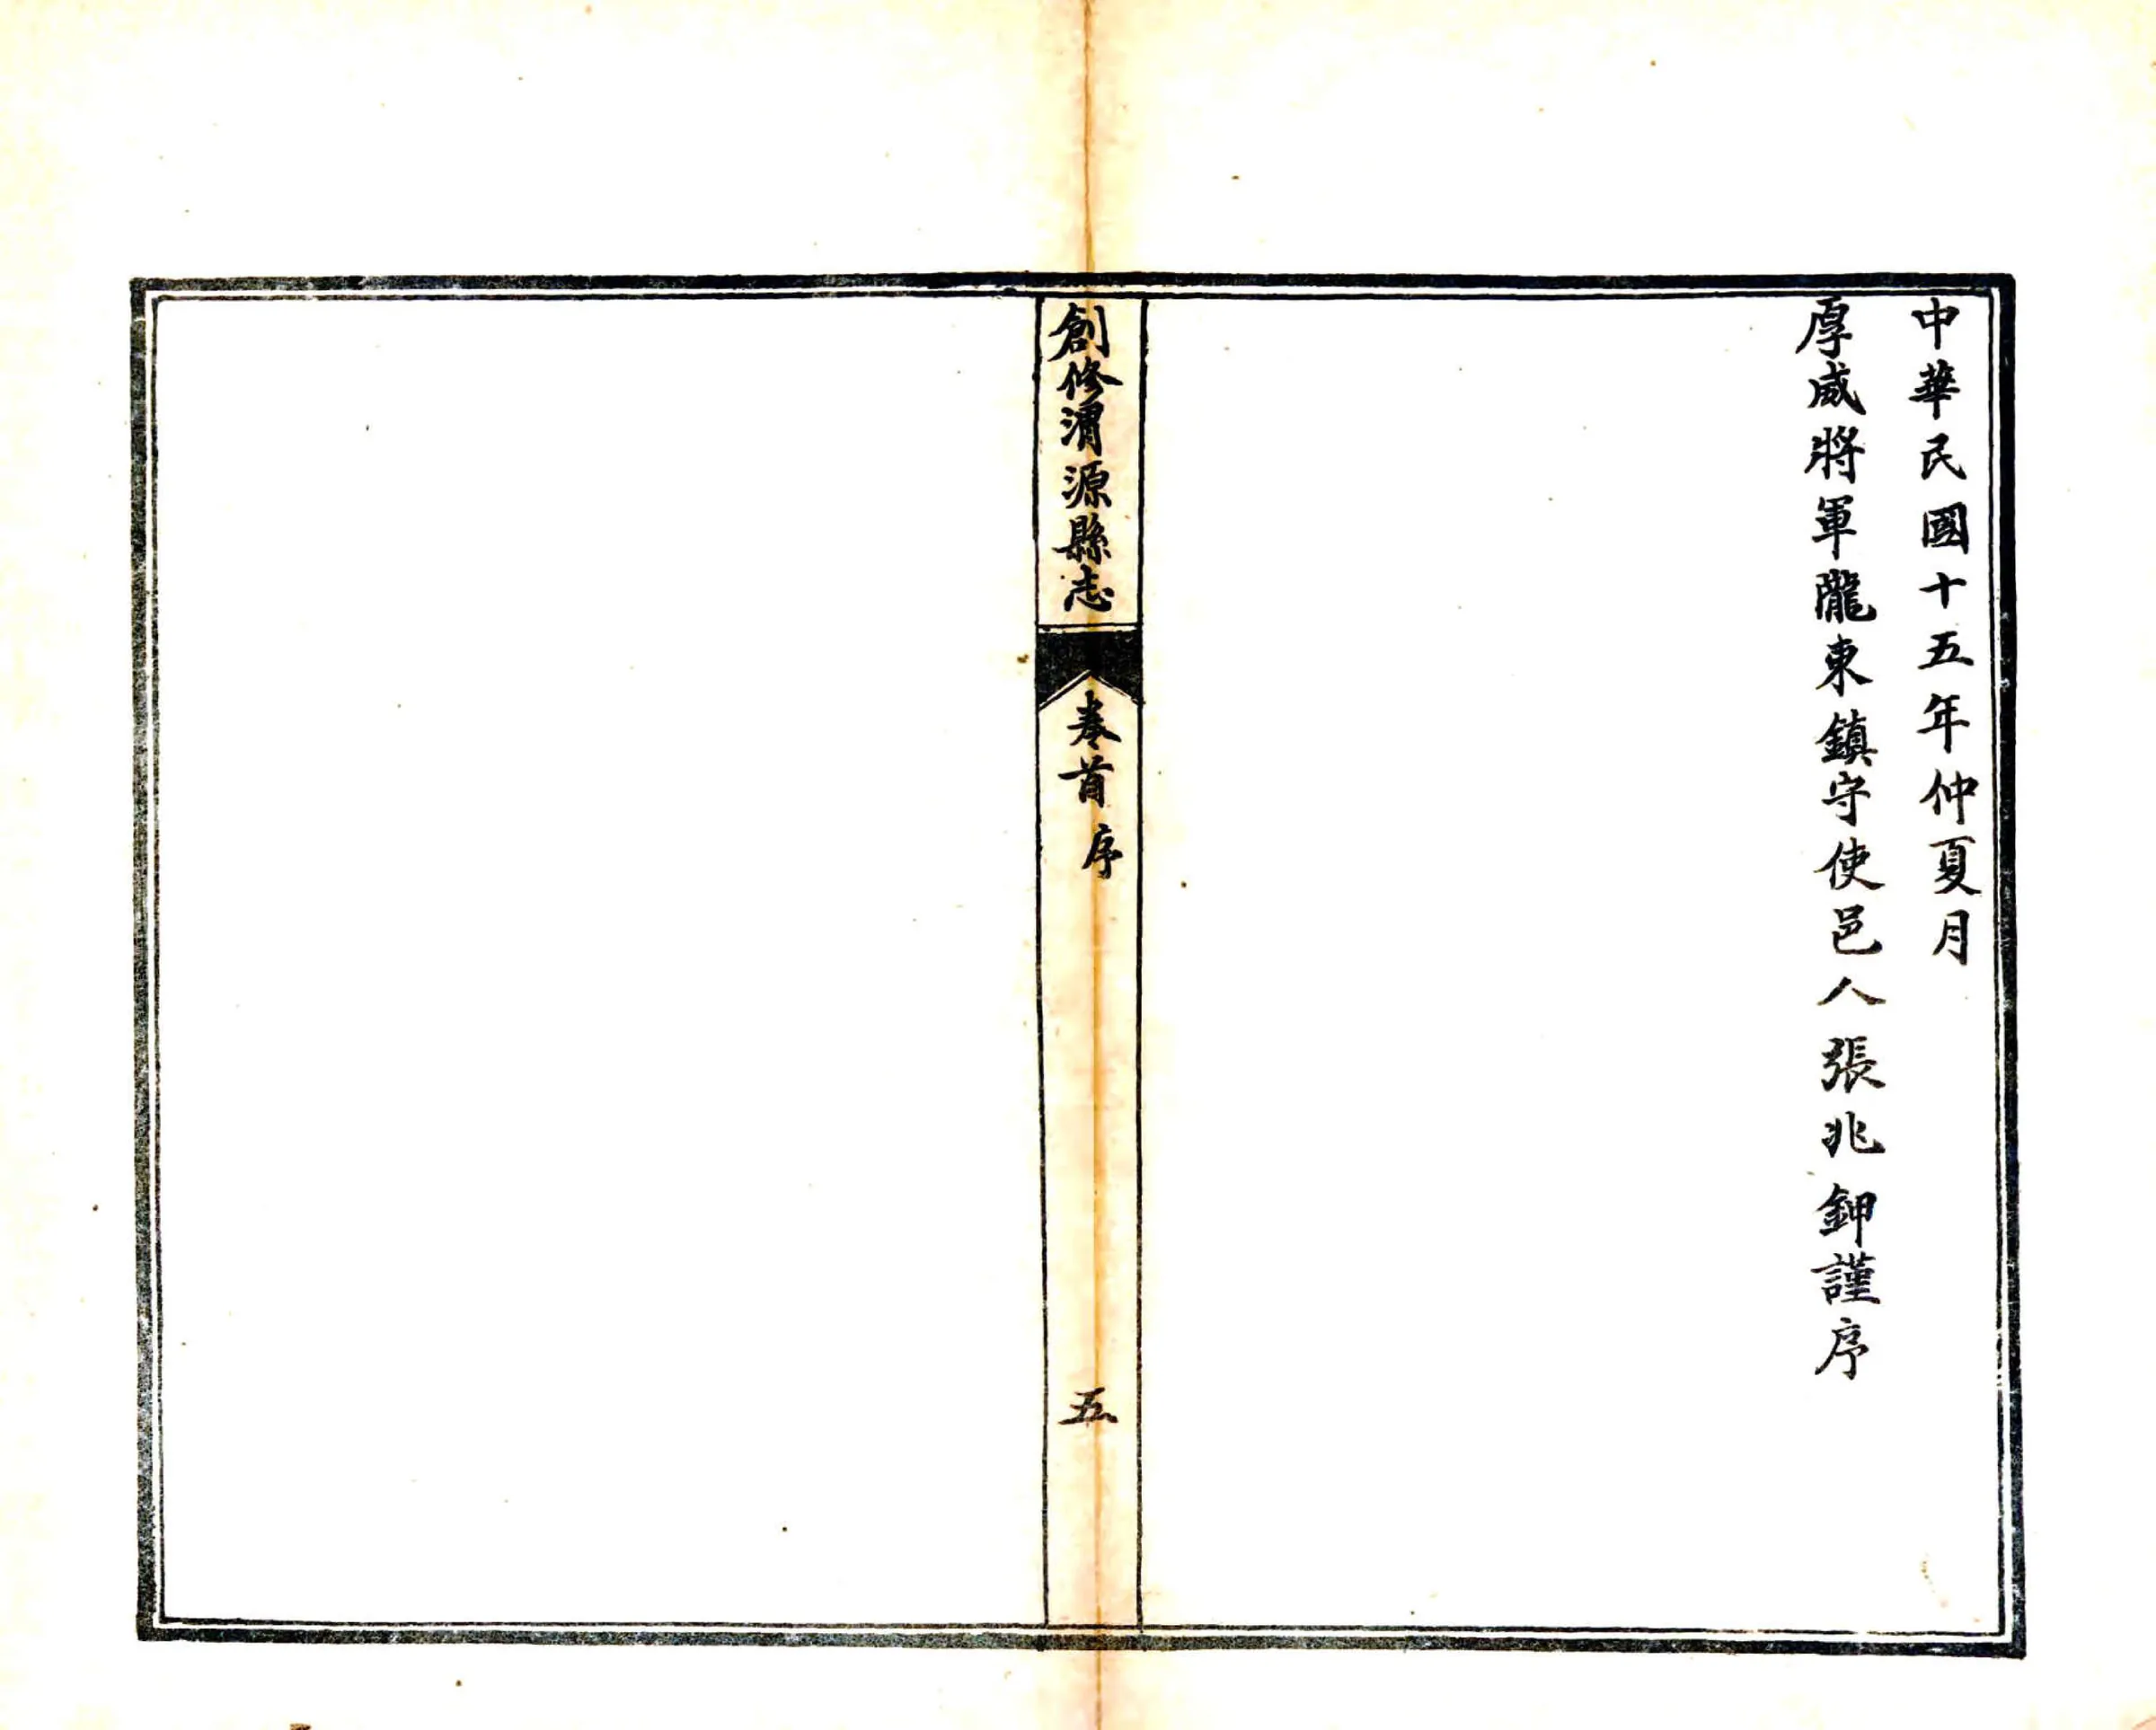 中華民國十五年仲夏月
厚威將軍隴東鎮守使邑人張兆鉀謹序
創修渭源縣志
卷首 序
五